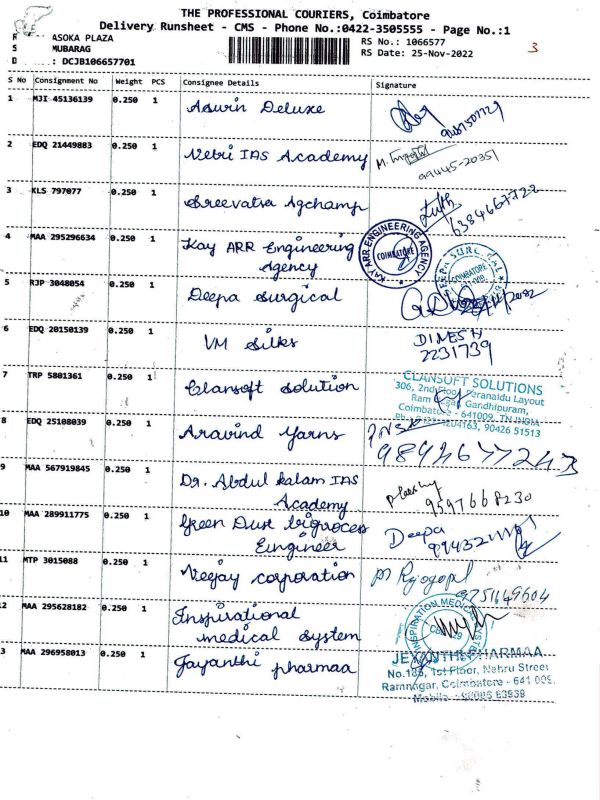 THE PROFESSIONAL COURIERS, Coimbatore
Delivery Runsheet - CMS - Phone No.:0422-3505555 - Page No.:1
ASOKA PLAZA
RS No.: 1066577
MUBARAG
RS Date: 25-Nov-2022
3
: DCJB106657701
S No Consignment No Weight PCS Consignee Details Signature
1 MJI 45136139 0.250 1 Asurin Deluxe
2 EDQ 21449883 0.250 1 Vebri IAS Academy 99445-20351
3 KLS 797077 0.250 1 Sreevatsa Agchamp 6384667722
4 MAA 295296634 0.250 1 Kay ARR Engineering
Agency
KAY ARR ENGINEERING AGENCY
COIMBATORE
5 RJP 3048054 0.250 1 Deepa Surgical
COIMBATORE
6 EDQ 20150139 0.250 1 VM Silks DINESH
2231739
7 TRP 5801361 0.250 1 Clansoft Solution
CLANSOFT SOLUTIONS
306, 2nd Floor, Peranaidu Layout
Gandhipuram,
Coimbatore - 641009, TN.INDIA
90426 51513
8 EDQ 25108039 0.250 1 Aravind Yarns
9 MAA 567919845 0.250 1 Dr. Abdul Kalam IAS
Academy
9597668230
10 MAA 289911775 0.250 1 Green Dust
Eingineer
Deepa
11 MTP 3015088 0.250 1 Veejay corporation
9751149604
12 MAA 295628182 0.250 1 Inspirational
medical system
13 MAA 296958013 0.250 1 Jayanthi pharmaa
JEYANTHI PHARMAA
1st Floor, Nehru Street
Ramnagar, Coimbatore - 641 009.